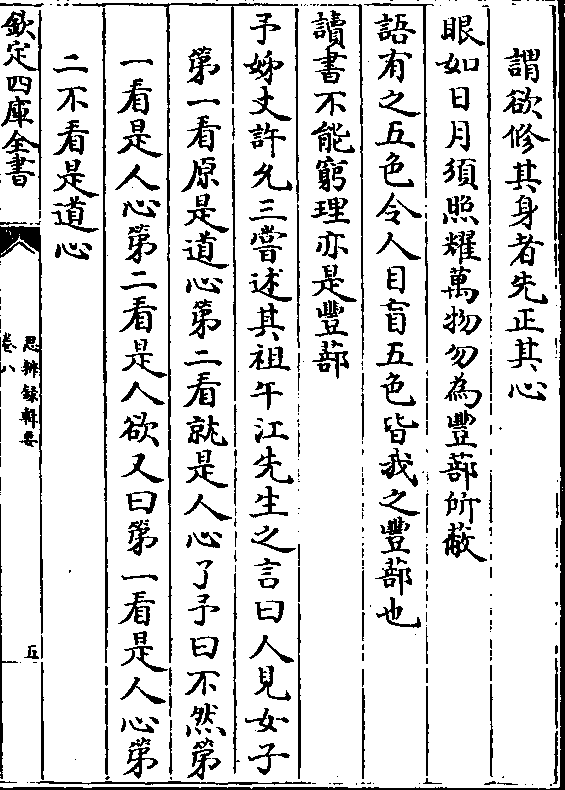 謂欲修其身者先正其心
眼如日月須照耀萬物勿為豐蔀所蔽
語有之五色令人目盲五色皆我之豐蔀也
讀書不能窮理亦是豐蔀
予姊丈許允三嘗述其祖午江先生之言曰人見女子
第一看原是道心第二看就是人心了予曰不然第
一看是人心第二看是人欲又曰第一看是人心第
二不看是道心
欽定四庫全書
思辨錄輯要
卷八
五